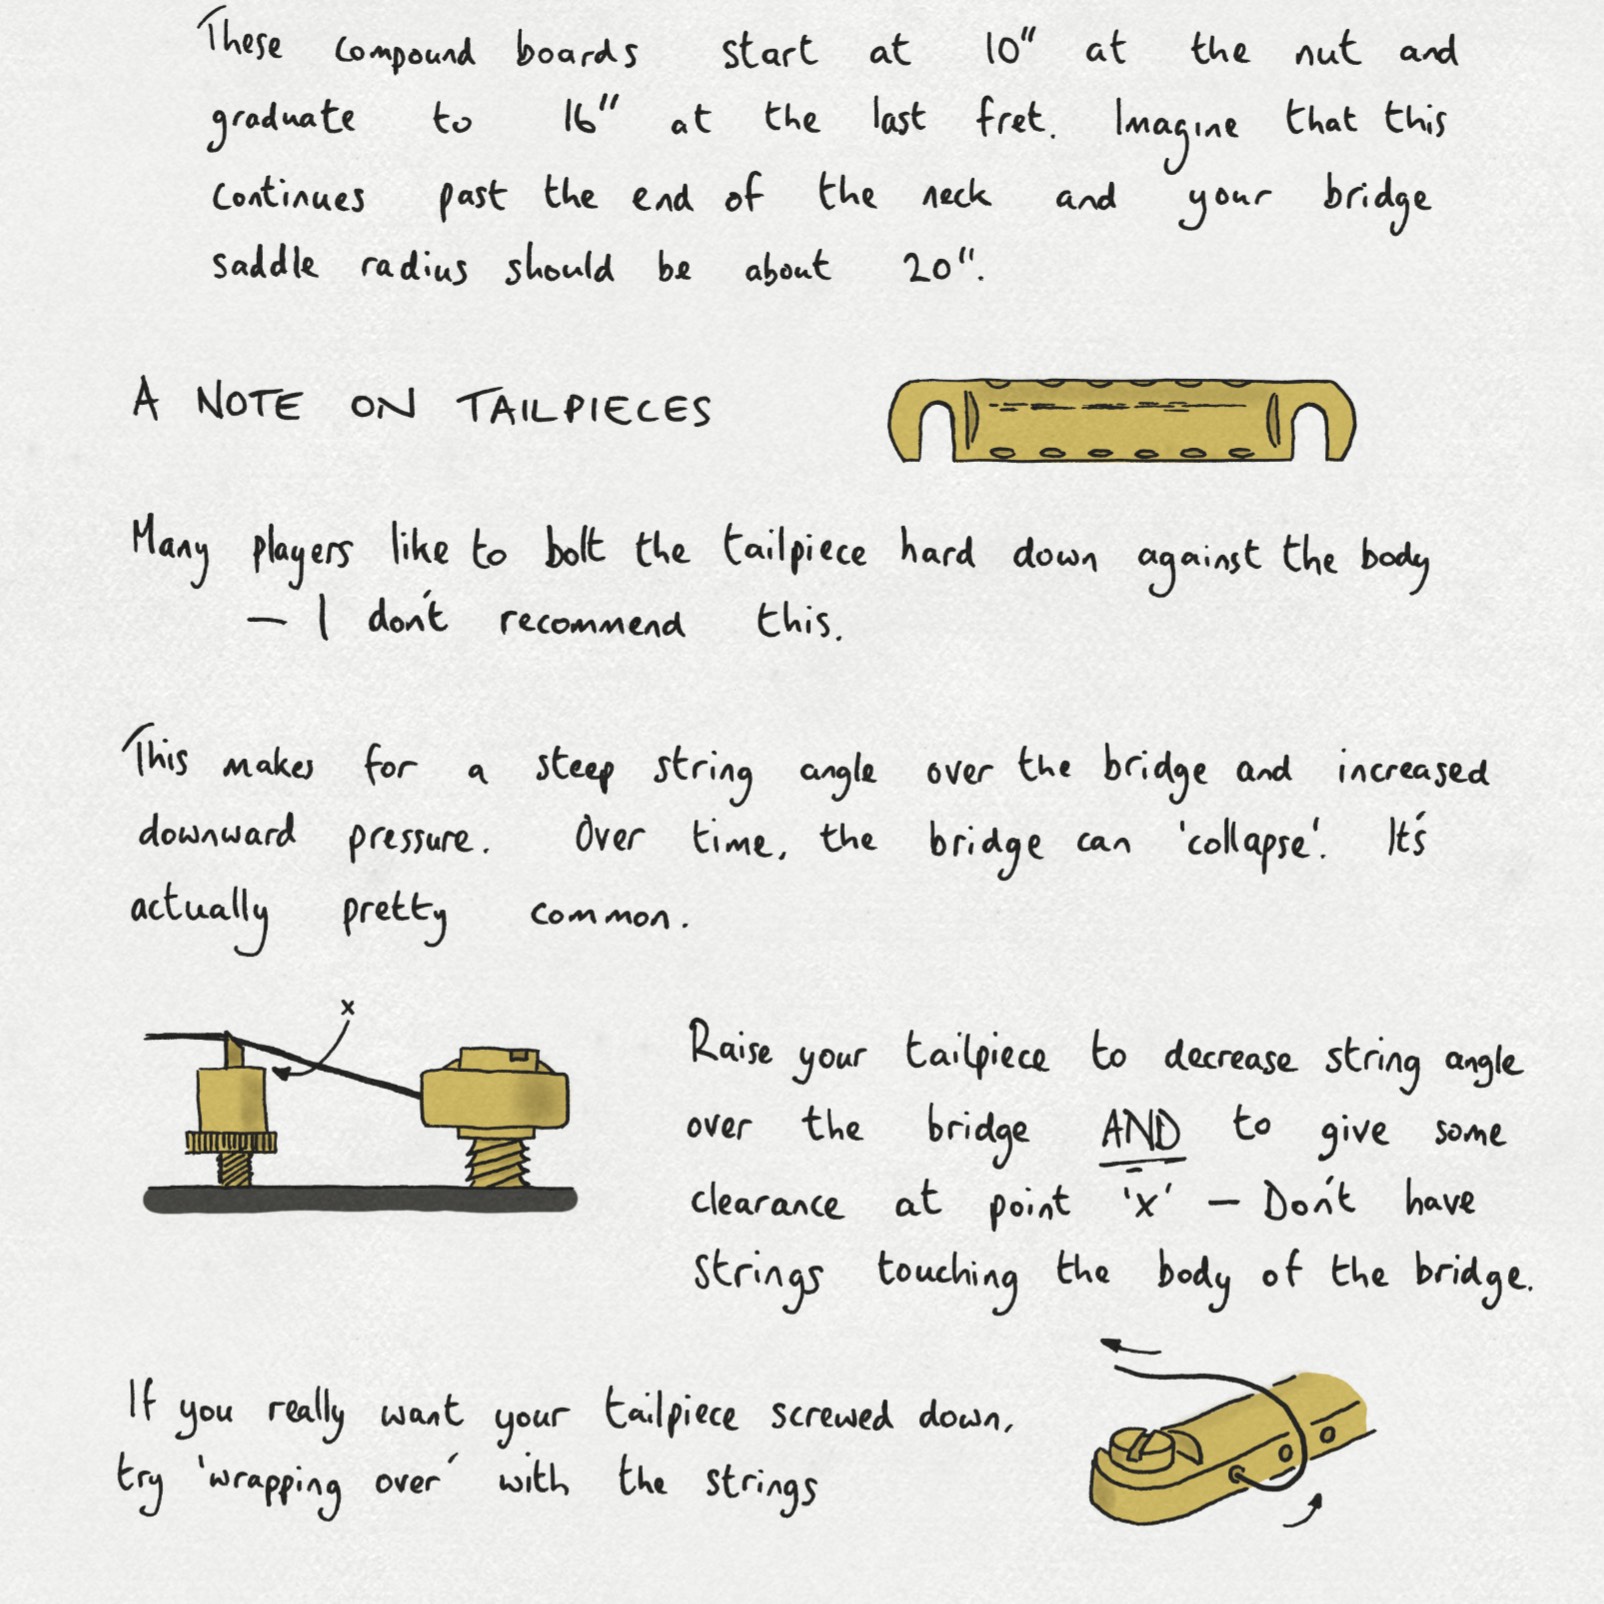 These compound boards start at 10" at the nut and
graduate to 16" at the last fret. Imagine that this
continues past the end of the neck and your bridge
saddle radius should be about 20".
A NOTE ON TAILPIECES
Many players like to bolt the tailpiece hard down against the body
— I don't recommend this.
This makes for a steep string angle over the bridge and increased
downward pressure. Over time, the bridge can 'collapse'. It's
actually pretty common.
x
Raise your tailpiece to decrease string angle
over the bridge AND to give some
clearance at point 'x' — Don't have
strings touching the body of the bridge.
If you really want your tailpiece screwed down,
try 'wrapping over' with the strings